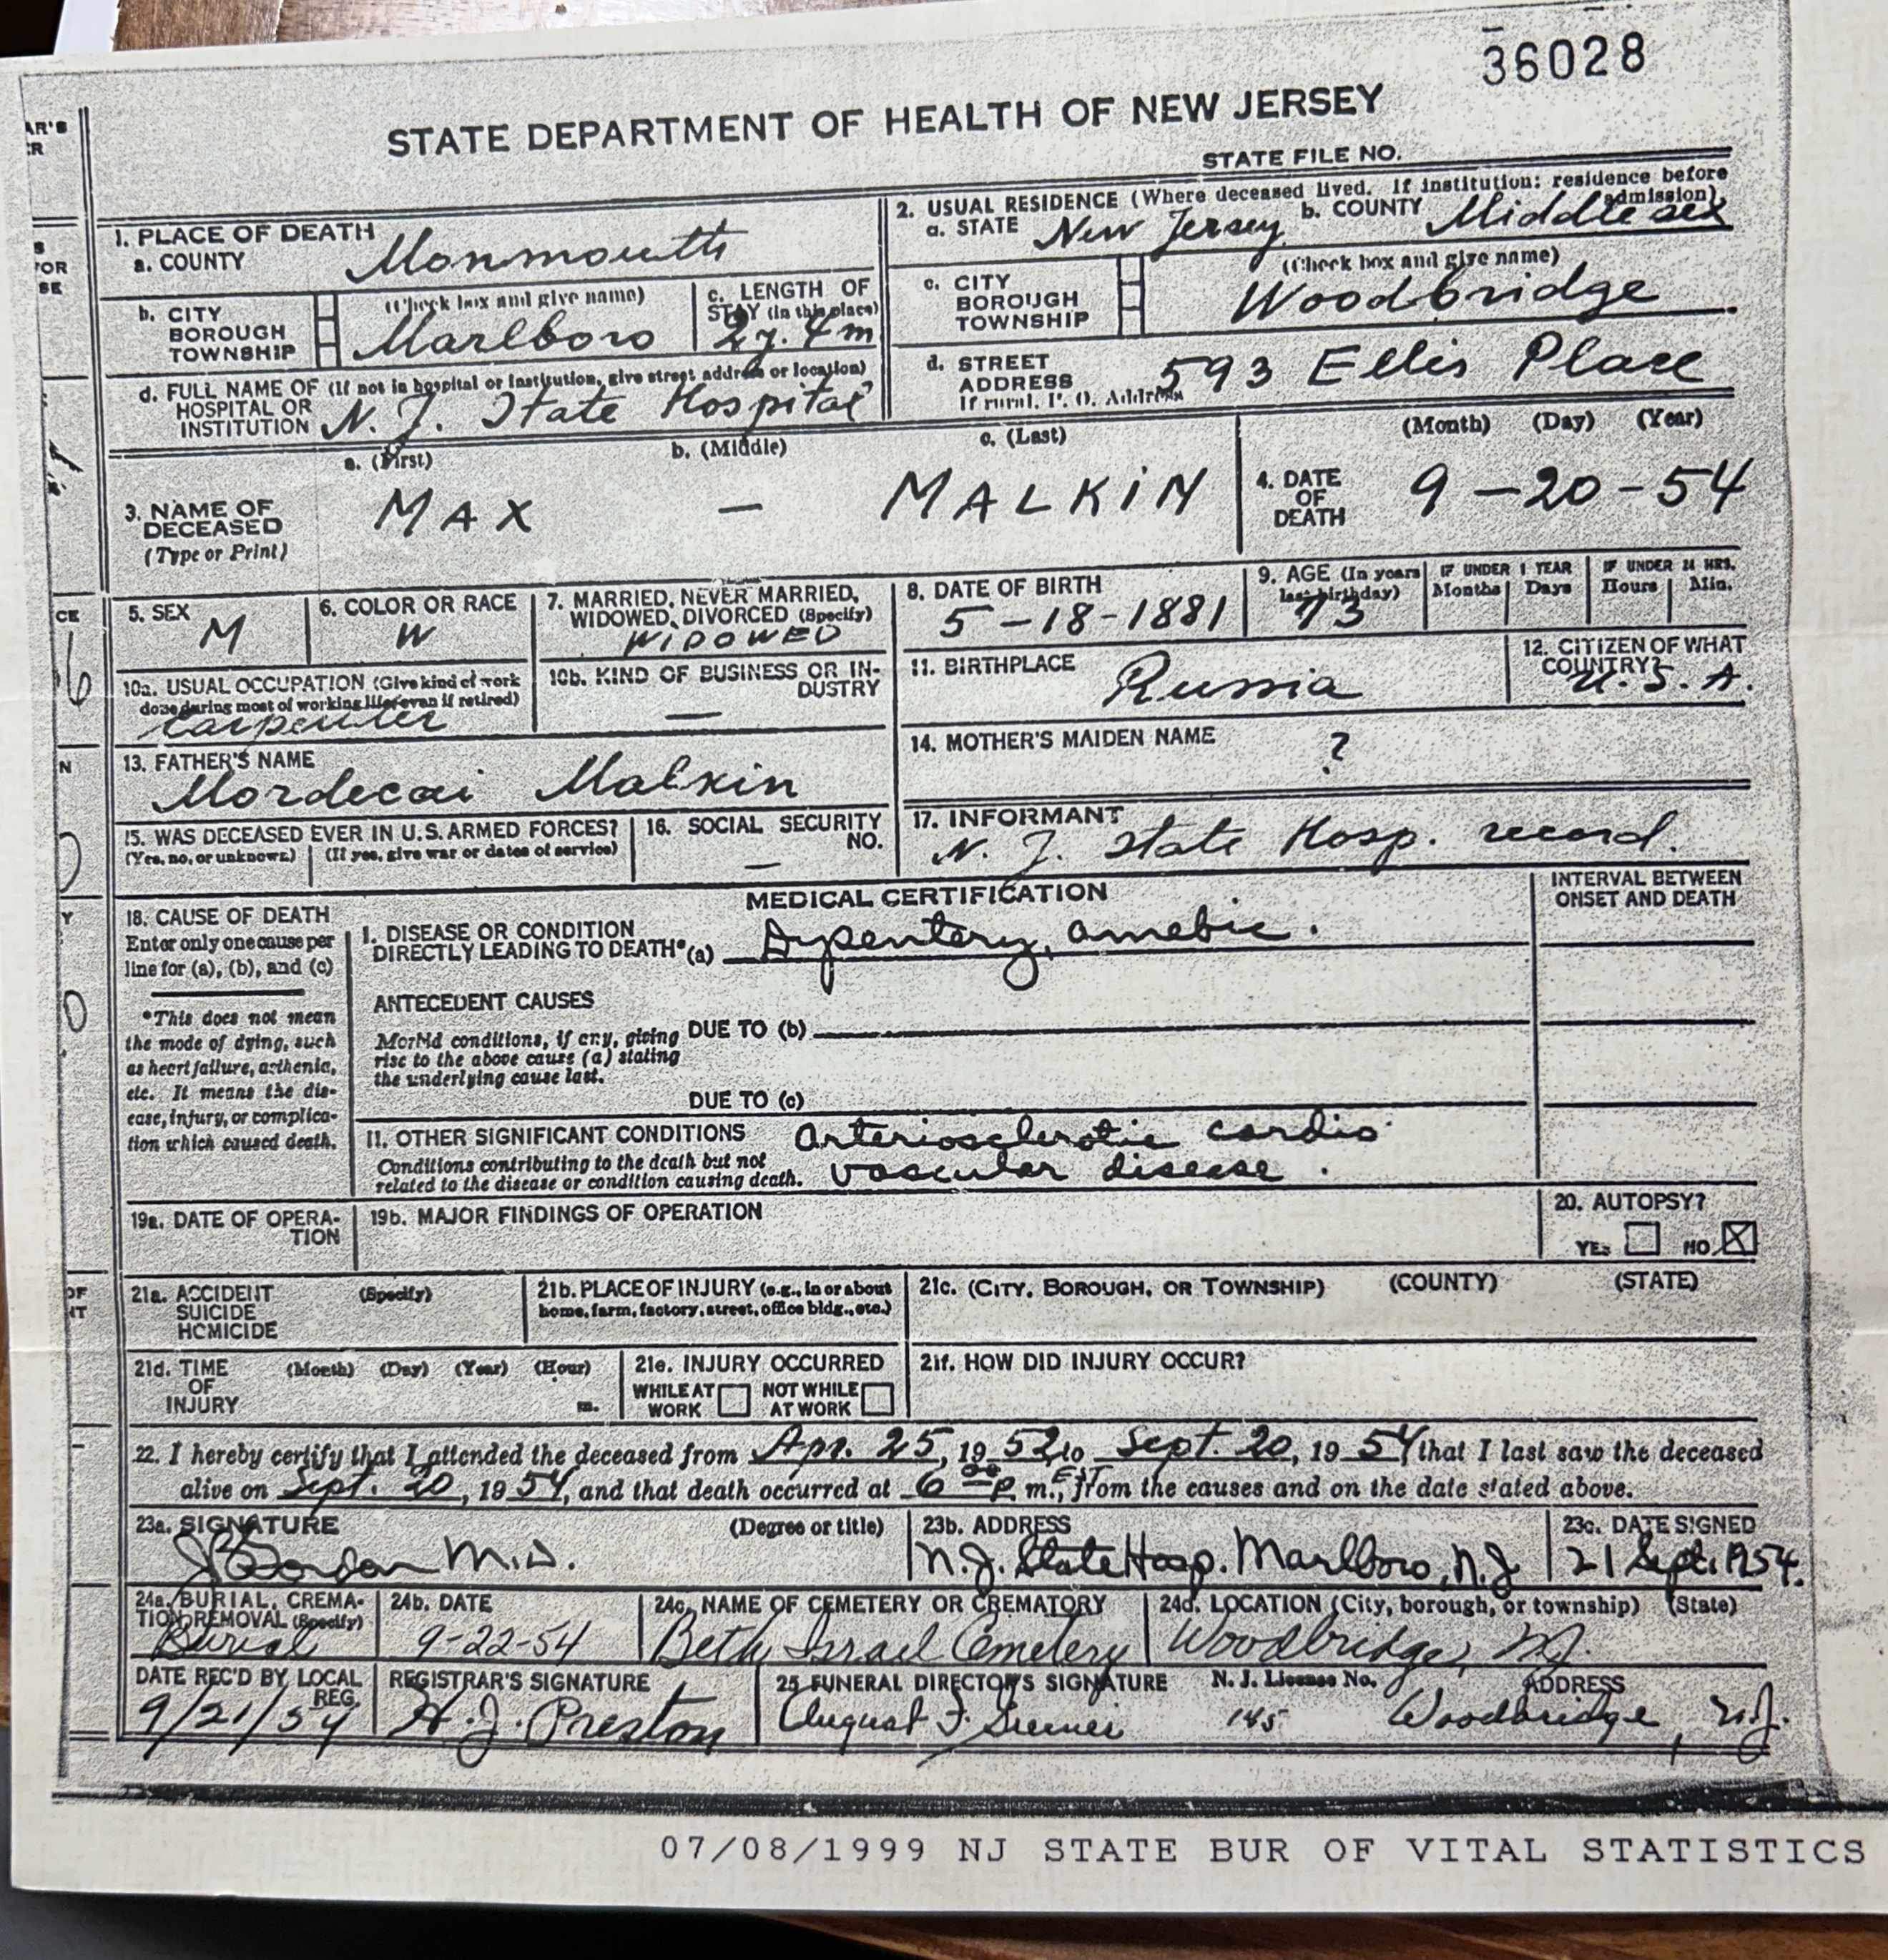 36028
STATE DEPARTMENT OF HEALTH OF NEW JERSEY
STATE FILE NO.
1. PLACE OF DEATH
a. COUNTY Monmouth
b. CITY BOROUGH TOWNSHIP (Check box and give name) Marlboro
c. LENGTH OF STAY (in this place) 2y. 4m
d. FULL NAME OF (If not in hospital or institution, give street address or location)
HOSPITAL OR INSTITUTION N. J. State Hospital
2. USUAL RESIDENCE (Where deceased lived. If institution: residence before admission)
a. STATE New Jersey b. COUNTY Middlesex
c. CITY BOROUGH TOWNSHIP (Check box and give name) Woodbridge
d. STREET ADDRESS If rural, P. O. Address 593 Ellis Place
3. NAME OF DECEASED (Type or Print)
a. (First) b. (Middle) c. (Last)
MAX — MALKIN
4. DATE OF DEATH (Month) (Day) (Year)
9-20-54
5. SEX M
6. COLOR OR RACE W
7. MARRIED, NEVER MARRIED, WIDOWED, DIVORCED (Specify) WIDOWED
8. DATE OF BIRTH 5-18-1881
9. AGE (In years last birthday) 73
IF UNDER 1 YEAR Months Days
IF UNDER 24 HRS. Hours Min.
10a. USUAL OCCUPATION (Give kind of work done during most of working life, even if retired) Carpenter
10b. KIND OF BUSINESS OR INDUSTRY —
11. BIRTHPLACE Russia
12. CITIZEN OF WHAT COUNTRY? U. S. A.
13. FATHER'S NAME Mordecai Malkin
14. MOTHER'S MAIDEN NAME ?
15. WAS DECEASED EVER IN U.S. ARMED FORCES?
(Yes, no, or unknown) (If yes, give war or dates of service)
16. SOCIAL SECURITY NO. —
17. INFORMANT N. J. State Hosp. record.
MEDICAL CERTIFICATION
INTERVAL BETWEEN ONSET AND DEATH
18. CAUSE OF DEATH
Enter only one cause per line for (a), (b), and (c)
*This does not mean the mode of dying, such as heart failure, asthenia, etc. It means the disease, injury, or complication which caused death.
I. DISEASE OR CONDITION DIRECTLY LEADING TO DEATH* (a) Dysentery, amebic.
ANTECEDENT CAUSES
Morbid conditions, if any, giving rise to the above cause (a) stating the underlying cause last.
DUE TO (b)
DUE TO (c)
II. OTHER SIGNIFICANT CONDITIONS
Conditions contributing to the death but not related to the disease or condition causing death.
Arteriosclerotic cardio
vascular disease.
19a. DATE OF OPERATION
19b. MAJOR FINDINGS OF OPERATION
20. AUTOPSY?
YES NO X
21a. ACCIDENT SUICIDE HOMICIDE (Specify)
21b. PLACE OF INJURY (e.g., in or about home, farm, factory, street, office bldg., etc.)
21c. (CITY, BOROUGH, OR TOWNSHIP) (COUNTY) (STATE)
21d. TIME OF INJURY (Month) (Day) (Year) (Hour) m.
21e. INJURY OCCURRED
WHILE AT WORK NOT WHILE AT WORK
21f. HOW DID INJURY OCCUR?
22. I hereby certify that I attended the deceased from Apr. 25, 1952, to Sept. 20, 1954 that I last saw the deceased
alive on Sept. 20, 1954, and that death occurred at 6 00 P m., EST from the causes and on the date stated above.
23a. SIGNATURE (Degree or title)
M.D.
23b. ADDRESS N.J. State Hosp. Marlboro, N.J.
23c. DATE SIGNED 21 Sept. 1954.
24a. BURIAL, CREMATION, REMOVAL (Specify) Burial
24b. DATE 9-22-54
24c. NAME OF CEMETERY OR CREMATORY Beth Israel Cemetery
24d. LOCATION (City, borough, or township) (State) Woodbridge, NJ.
DATE REC'D BY LOCAL REG. 9/21/54
REGISTRAR'S SIGNATURE H. J. Preston
25. FUNERAL DIRECTOR'S SIGNATURE August F.
N. J. License No. 145
ADDRESS Woodbridge, N.J.
07/08/1999 NJ STATE BUR OF VITAL STATISTICS